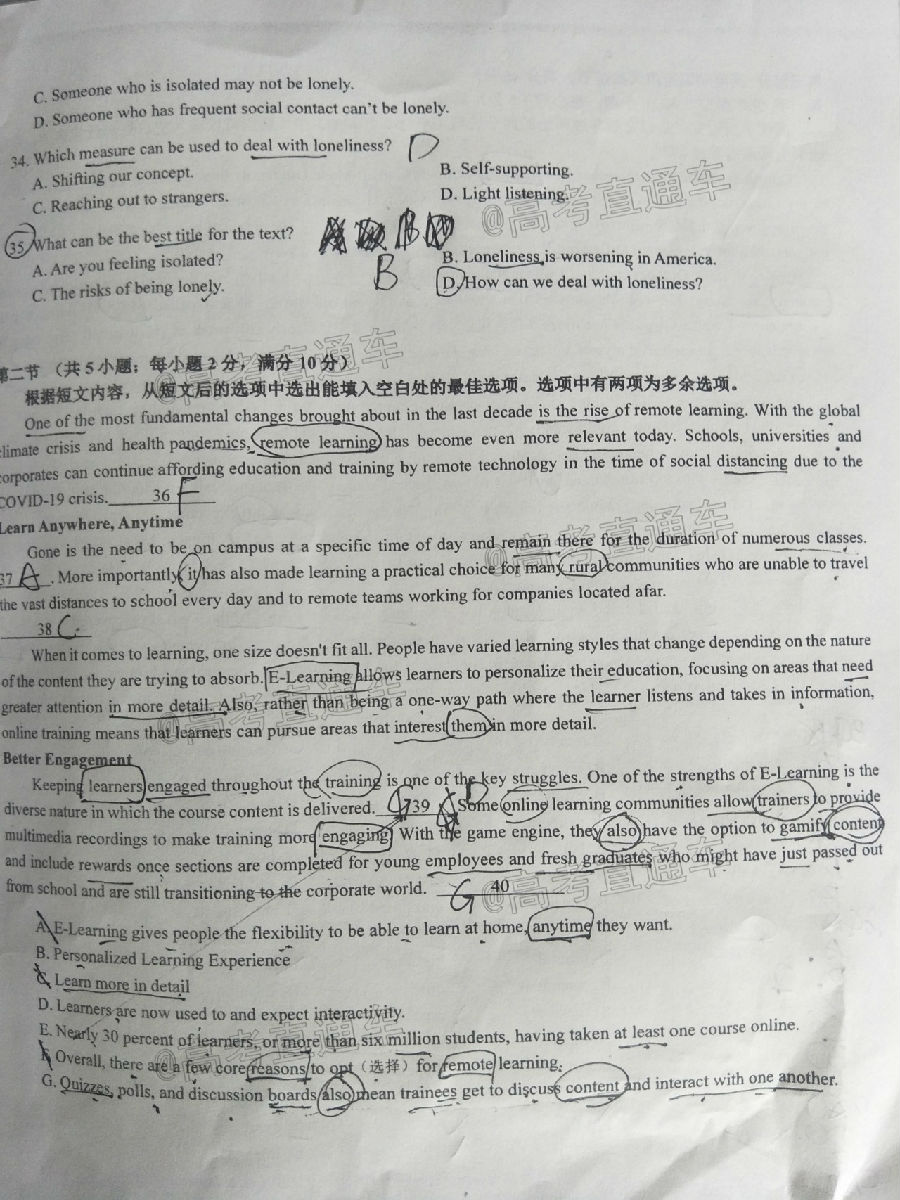 C. Someone who is isolated may not be lonely.
D. Someone who has frequent social contact can't be lonely.
34. Which measure can be used to deal with loneliness? D
A. Shifting our concept.
B. Self-supporting.
C. Reaching out to strangers.
D. Light listening.
@高考直通车
35. What can be the best title for the text?
B
A. Are you feeling isolated?
B. Loneliness is worsening in America.
B
C. The risks of being lonely.
D. How can we deal with loneliness?
@高考直通车
第二节 (共5小题;每小题2分,满分10分)
根据短文内容,从短文后的选项中选出能填入空白处的最佳选项。选项中有两项为多余选项。
One of the most fundamental changes brought about in the last decade is the rise of remote learning. With the global
climate crisis and health pandemics, remote learning has become even more relevant today. Schools, universities and
corporates can continue affording education and training by remote technology in the time of social distancing due to the
COVID-19 crisis. 36 F
Learn Anywhere, Anytime
@高考直通车
Gone is the need to be on campus at a specific time of day and remain there for the duration of numerous classes.
37 A . More importantly, it has also made learning a practical choice for many rural communities who are unable to travel
the vast distances to school every day and to remote teams working for companies located afar.
38 C.
When it comes to learning, one size doesn't fit all. People have varied learning styles that change depending on the nature
of the content they are trying to absorb. E-Learning allows learners to personalize their education, focusing on areas that need
greater attention in more detail. Also, rather than being a one-way path where the learner listens and takes in information,
online training means that learners can pursue areas that interest them in more detail.
@高考直通车
Better Engagement
Keeping learners engaged throughout the training is one of the key struggles. One of the strengths of E-Learning is the
diverse nature in which the course content is delivered. 39 D Some online learning communities allow trainers to provide
multimedia recordings to make training more engaging. With the game engine, they also have the option to gamify content
and include rewards once sections are completed for young employees and fresh graduates who might have just passed out
from school and are still transitioning to the corporate world. G 40
@高考直通车
A. E-Learning gives people the flexibility to be able to learn at home, anytime they want.
B. Personalized Learning Experience
C. Learn more in detail
D. Learners are now used to and expect interactivity.
E. Nearly 30 percent of learners, or more than six million students, having taken at least one course online.
F. Overall, there are a few core reasons to opt (选择) for remote learning.
@高考直通车
G. Quizzes, polls, and discussion boards also mean trainees get to discuss content and interact with one another.